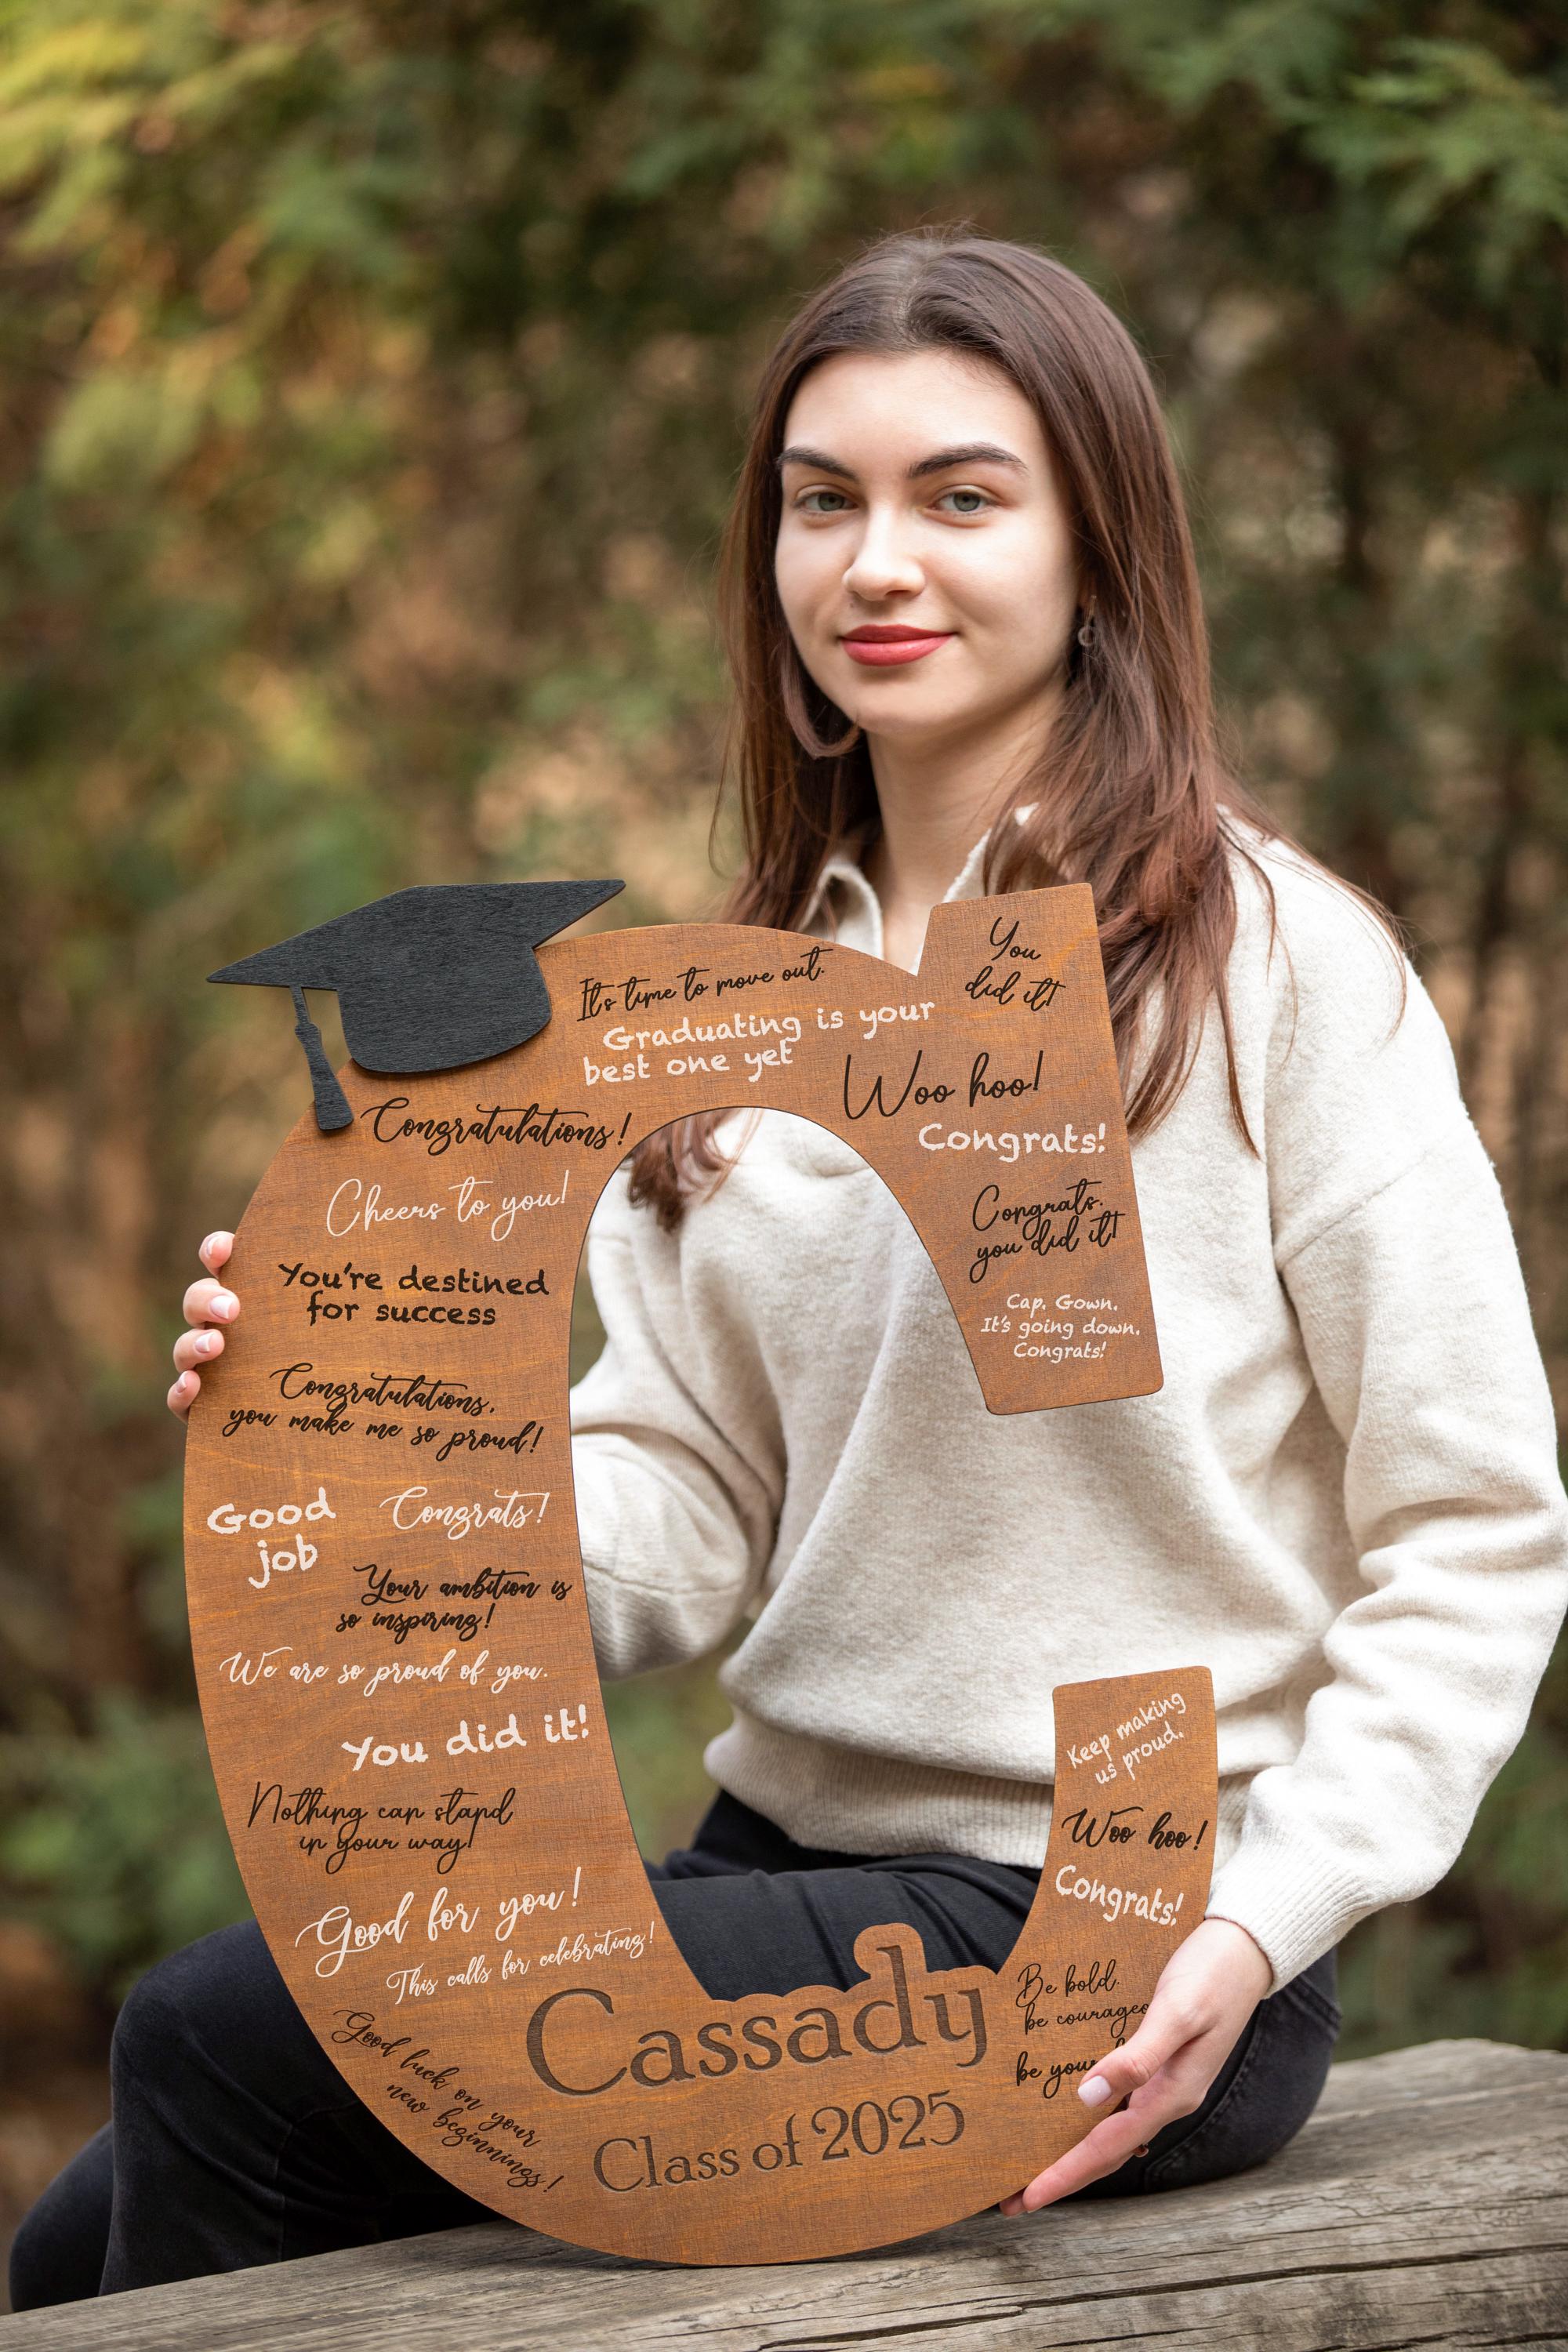 It's time to move out.
Graduating is your
best one yet
You
did it!
Woo hoo!
Congrats!
Congrats,
you did it!
Cap. Gown.
It's going down.
Congrats!
Congratulations!
Cheers to you!
You're destined
for success
Congratulations,
you make me so proud!
Good
job
Congrats!
Your ambition is
so inspiring!
We are so proud of you.
You did it!
Nothing can stand
in your way!
Good for you!
This calls for celebrating!
Good luck on your
new beginnings!
Cassady
Class of 2025
Keep making
us proud.
Woo hoo!
Congrats!
Be bold,
be
be